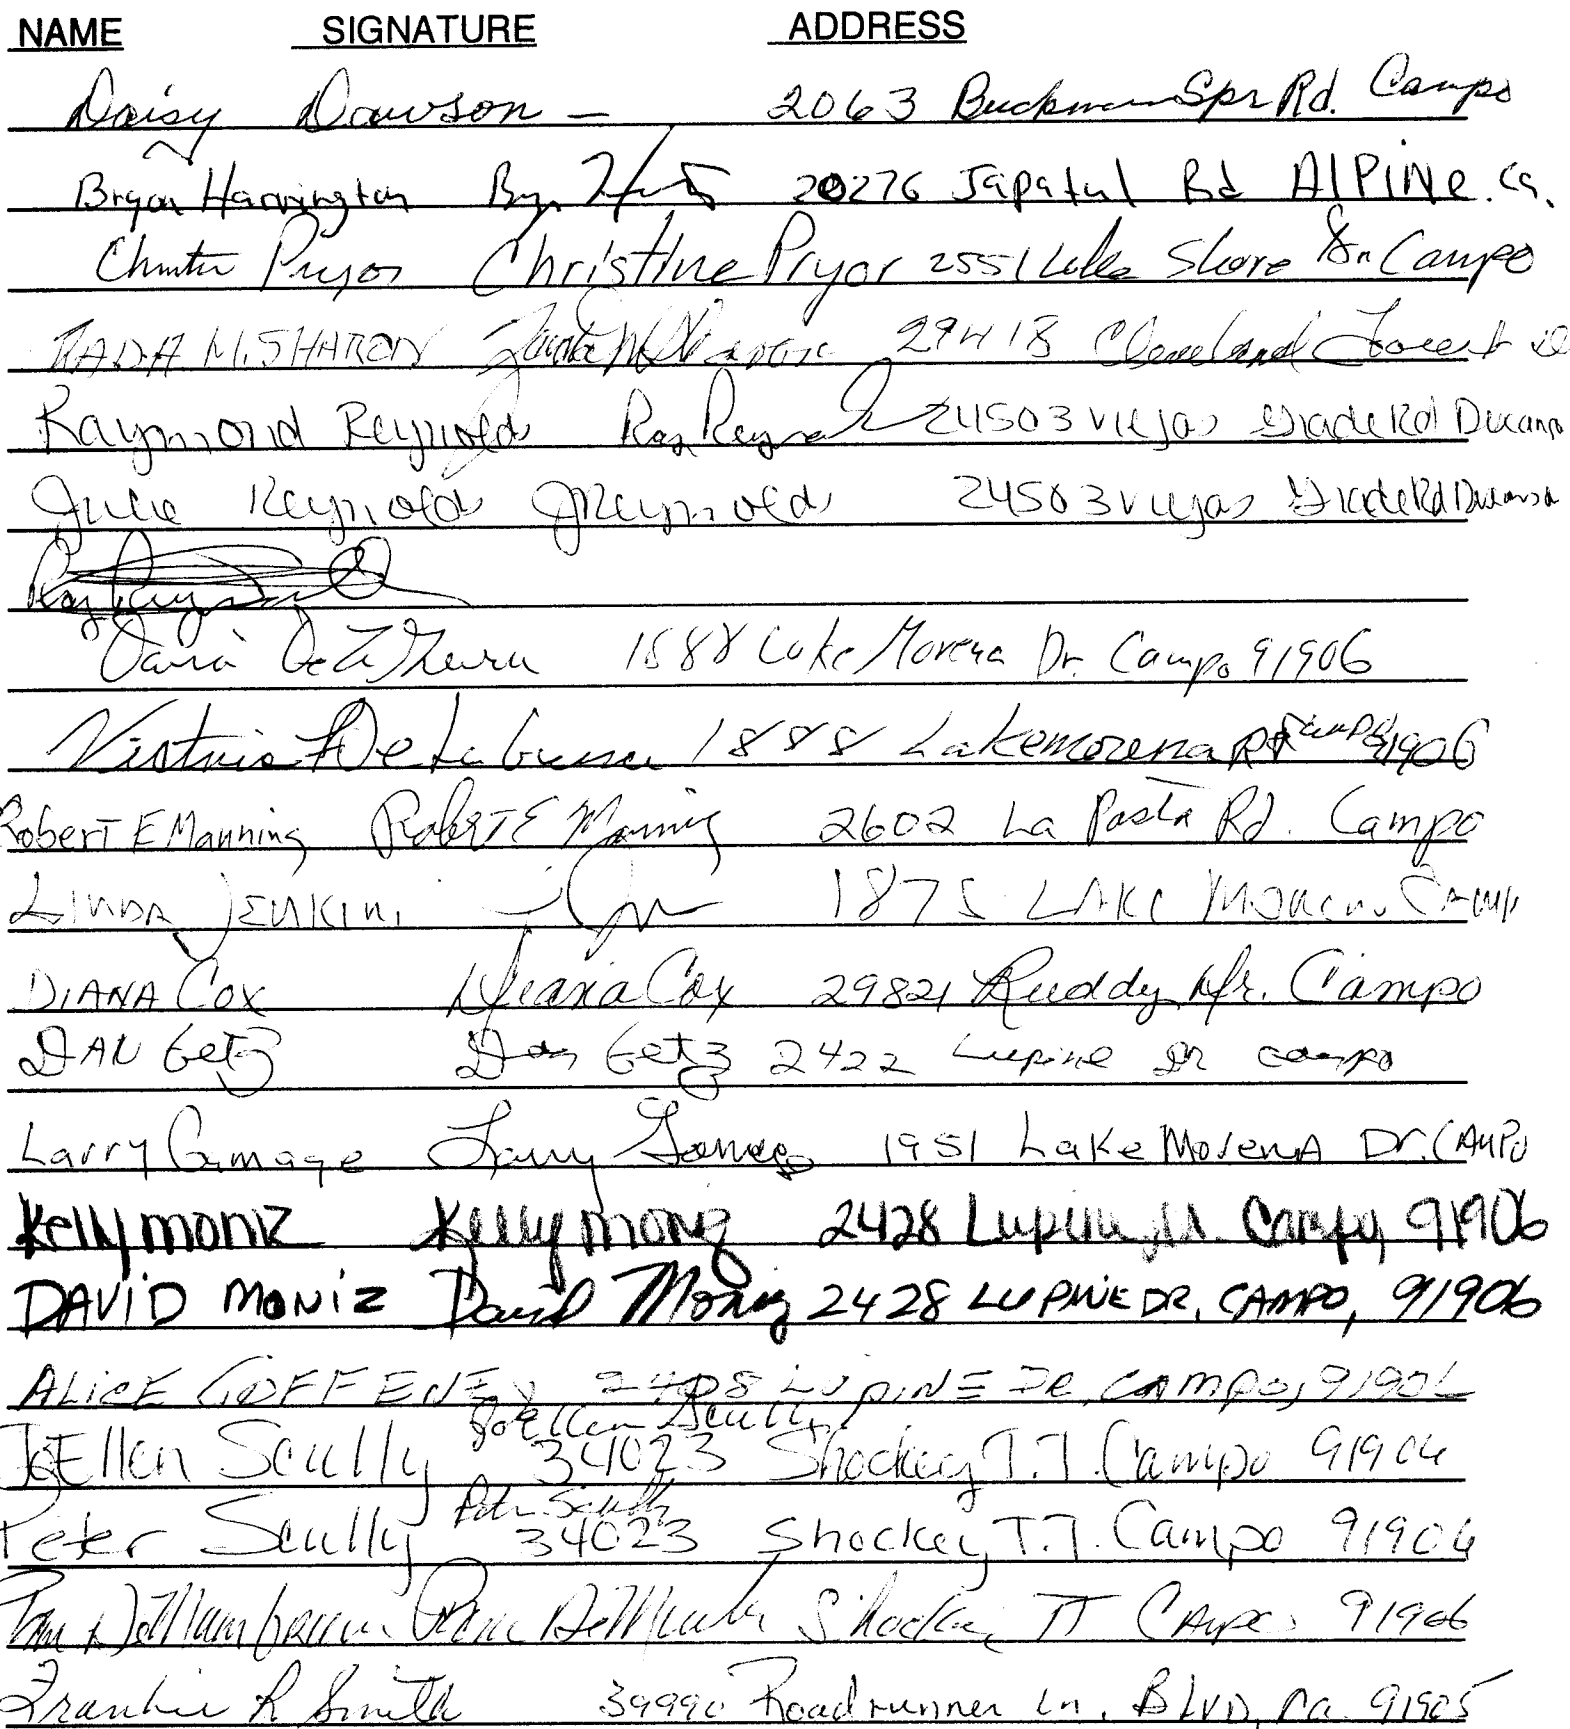 NAME SIGNATURE ADDRESS
Daisy Dawson - 2063 Buckman Spr Rd. Campo
Bryan Harrington 20276 Japatul Rd AlPiNe. Ca.
Pryor Christine Pryor 2551 Lake Shore Dr Campo
M. SHARON 29418 Cleveland Forest
Raymond Reynolds Ray 24503 Viejas Grade Rd
Julie Reynolds JReynolds 24503 Viejas Grade Rd
1888 Lake Morena Dr. Campo 91906
1888 Lakemorena Rd Campo 91906
Robert E Manning Robert E Manning 2602 La Posta Rd. Campo
LINDA JENKINS 1875 LAKE
DIANA COX Diana Cox 29821 Ruddy Dr. Campo
DAN Getz Dan Getz 2422 Lupine Dr campo
Larry Gamage Larry 1951 Lake MorenA Dr. CAMPO
Kelly moniz Kelly moniz 2428 Lupine Campo, 91906
DAVID MONIZ David Moniz 2428 LUPINE DR, CAMPO, 91906
ALICE 2408 LUPINE DR, CAMPO, 91906
JoEllen Scully
JoEllen Scully 34023 Shockey T.T. Campo 91906
Peter Scully 34023 Shockey T.T. Campo 91906
TT Campo 91906
Frankie R Smith 39990 Roadrunner Ln. BLVD, Ca. 91905